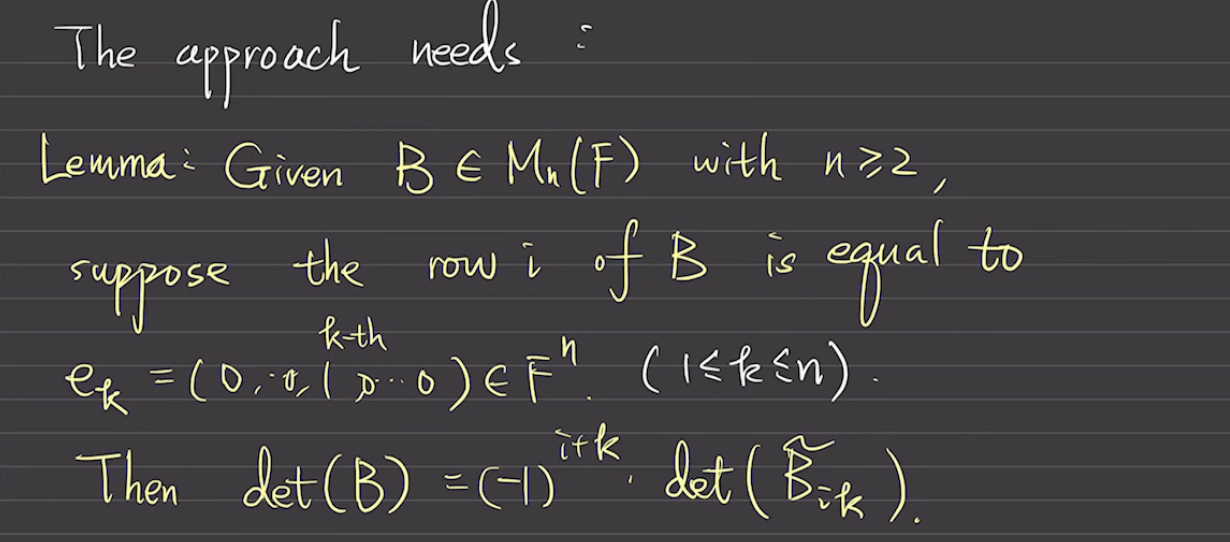 The approach needs :
Lemma: Given B ∈ Mₙ(F) with n ≥ 2,
suppose the row i of B is equal to
k-th
eₖ = (0, ·· 0, 1, 0 ··· 0) ∈ Fⁿ. (1 ≤ k ≤ n).
Then det(B) = (-1)^{i+k} · det(B̃ᵢₖ).